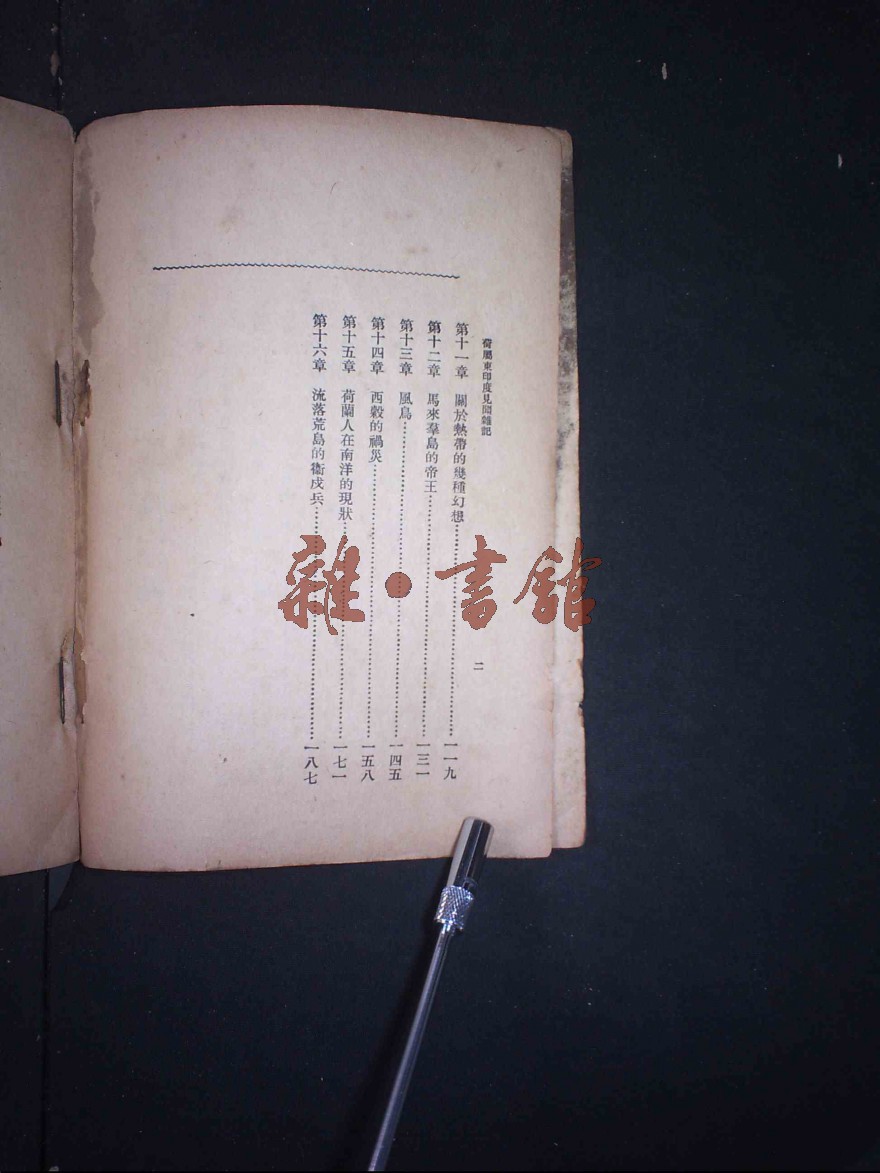 荷屬東印度見聞雜記
二
第十一章 關於熱帶的幾種幻想……一一九
第十二章 馬來羣島的帝王……一三一
第十三章 風鳥……一四五
第十四章 西穀的禍災……一五八
第十五章 荷蘭人在南洋的現狀……一七一
第十六章 流落荒島的衞戍兵……一八七
雜·書館